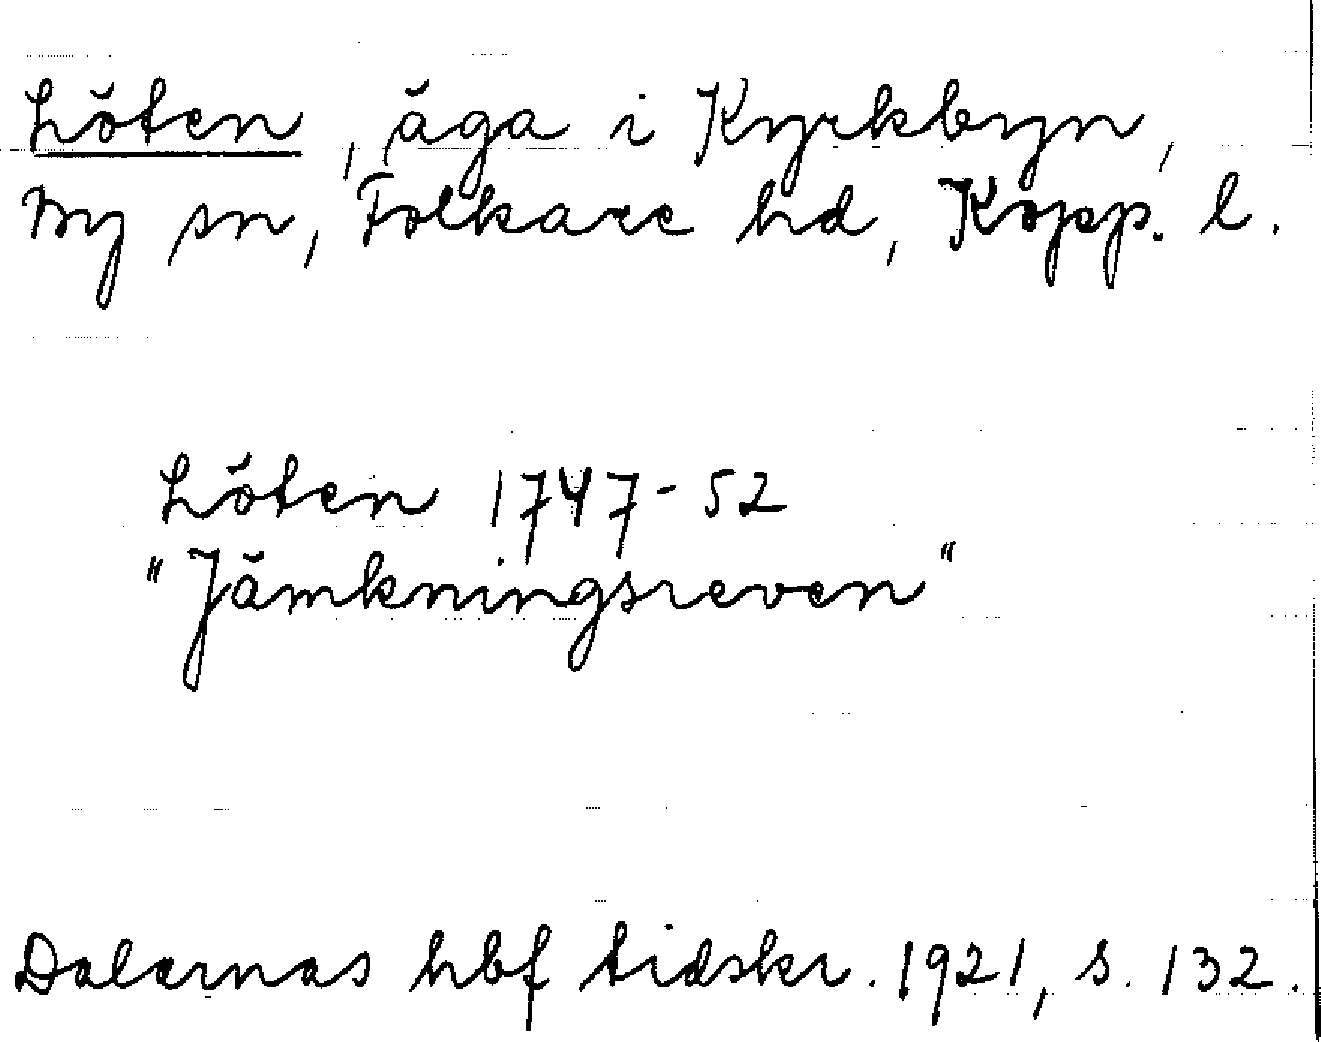 Löten, äga i Kyrkbyn,
By sn, Folkare hd, Kopp. l.
Löten 1747-52
"Jämkningsreven"
Dalarnas hbf tidskr. 1921, s. 132.